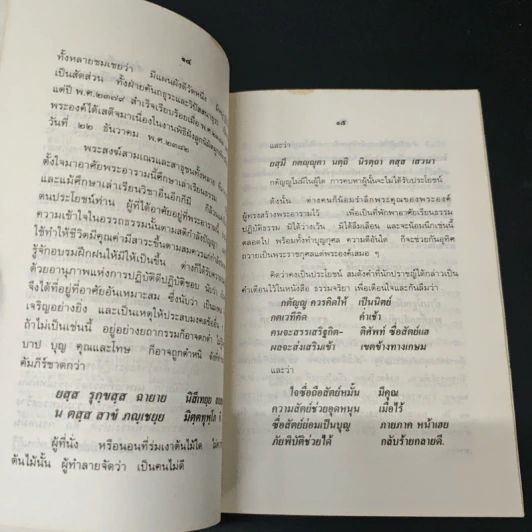 ๑๔
ทั้งหลายชมเชยว่า มีแผนผังดีวัดหนึ่ง
เป็นสัดส่วน ทั้งฝ่ายคันถธุระและวิปัสสนาธุระ
แต่ปี พ.ศ.๒๓๗๙ สำเร็จเรียบร้อยเมื่อ พ.ศ.
พระองค์ได้เสด็จมาเนื่องในงานพิธีผูกพัทธ
วันที่ ๒๒ ธันวาคม พ.ศ.๒๓๘๒
พระสงฆ์สามเณรและสาธุชนทั้งหลาย
ตั้งใจมาอาศัยพระอารามนี้ศึกษาเล่าเรียนธรรม
และแม้ศึกษาเล่าเรียนวิชาอื่นอีกก็มี
ตนประโยชน์ท่าน ผู้ที่ได้อาศัยอยู่ที่พระอารามนี้
ความเข้าใจในอรรถธรรมนั้นตามสติกำลังปัญญา
ใช้ทำให้ชีวิตมีคุณค่ามีสาระขึ้นตามสมควรแก่
รู้จักอบรมฝึกฝนให้มีให้เป็นขึ้น ต่างก็ได้รับความ
ด้วยอานุภาพแห่งการปฏิบัติดีปฏิบัติชอบ นับว่า
จึงได้ที่อยู่ที่อาศัยอันเหมาะสม ซึ่งนับว่า เป็น
เจริญอย่างยิ่ง และเป็นเหตุให้ประสบมงคลข้อ
ถ้าไม่เป็นเช่นนี้ อยู่อย่างยถากรรมก็อาจตกต่ำ
บาป บุญ คุณและโทษ ก็อาจถูกตำหนิ
คัมภีร์ชาดกว่า
ยสฺส รุกฺขสฺส ฉายาย นิสีเทยฺย
น ตสฺส สาขํ ภญฺเชยฺย มิตฺตทุพฺโภ
ผู้ที่นั่ง หรือนอนที่ร่มเงาต้นไม้ใด
ต้นไม้นั้น ผู้ทำลายจัดว่า เป็นคนไม่ดี
๑๕
และว่า
ยสฺมึ กตญฺญุตา นตฺถิ นิรตฺถา ตสฺส เสวนา
กตัญญูไม่มีในผู้ใด การคบหาผู้นั้นจะไม่ได้รับประโยชน์
ดังนั้น ต่างคนก็น้อมรำลึกพระคุณของพระองค์
ผู้ทรงสร้างพระอารามไว้ เพื่อเป็นที่พักอาศัยเรียนธรรม
ปฏิบัติธรรม มิได้ว่างเว้น มิได้ลืมเลือน และจะน้อมนึกเช่นนี้
ตลอดไป พร้อมทั้งทำบุญกุศล ความดีอันใด ก็จะช่วยกันอุทิศ
ถวายเป็นพระราชกุศลแด่พระองค์เสมอ ๆ
คิดว่าคงเป็นประโยชน์ สมดังคำที่นักปราชญ์ได้กล่าวเป็น
คำเตือนไว้ในหนังสือ ธรรมจริยา เพื่อเตือนใจและกันลืมว่า
กตัญญู ควรคิดให้ เป็นนิตย์
กตเวทีคิด ค่ำเช้า
คนจะสรรเสริฐกิต- ติศัพท์ ซื่อสัตย์แล
ผลจะส่งเสริมเข้า เขตข้างทางเกษม
และว่า
ใจซื่อถือสัตย์หมั้น มีคุณ
ความสัตย์ช่วยอุดหนุน เมื่อไร้
ซื่อสัตย์ย่อมเป็นบุญ ภายภาค หน้าเฮย
ภัยพิบัติช่วยได้ กลับร้ายกลายดี.